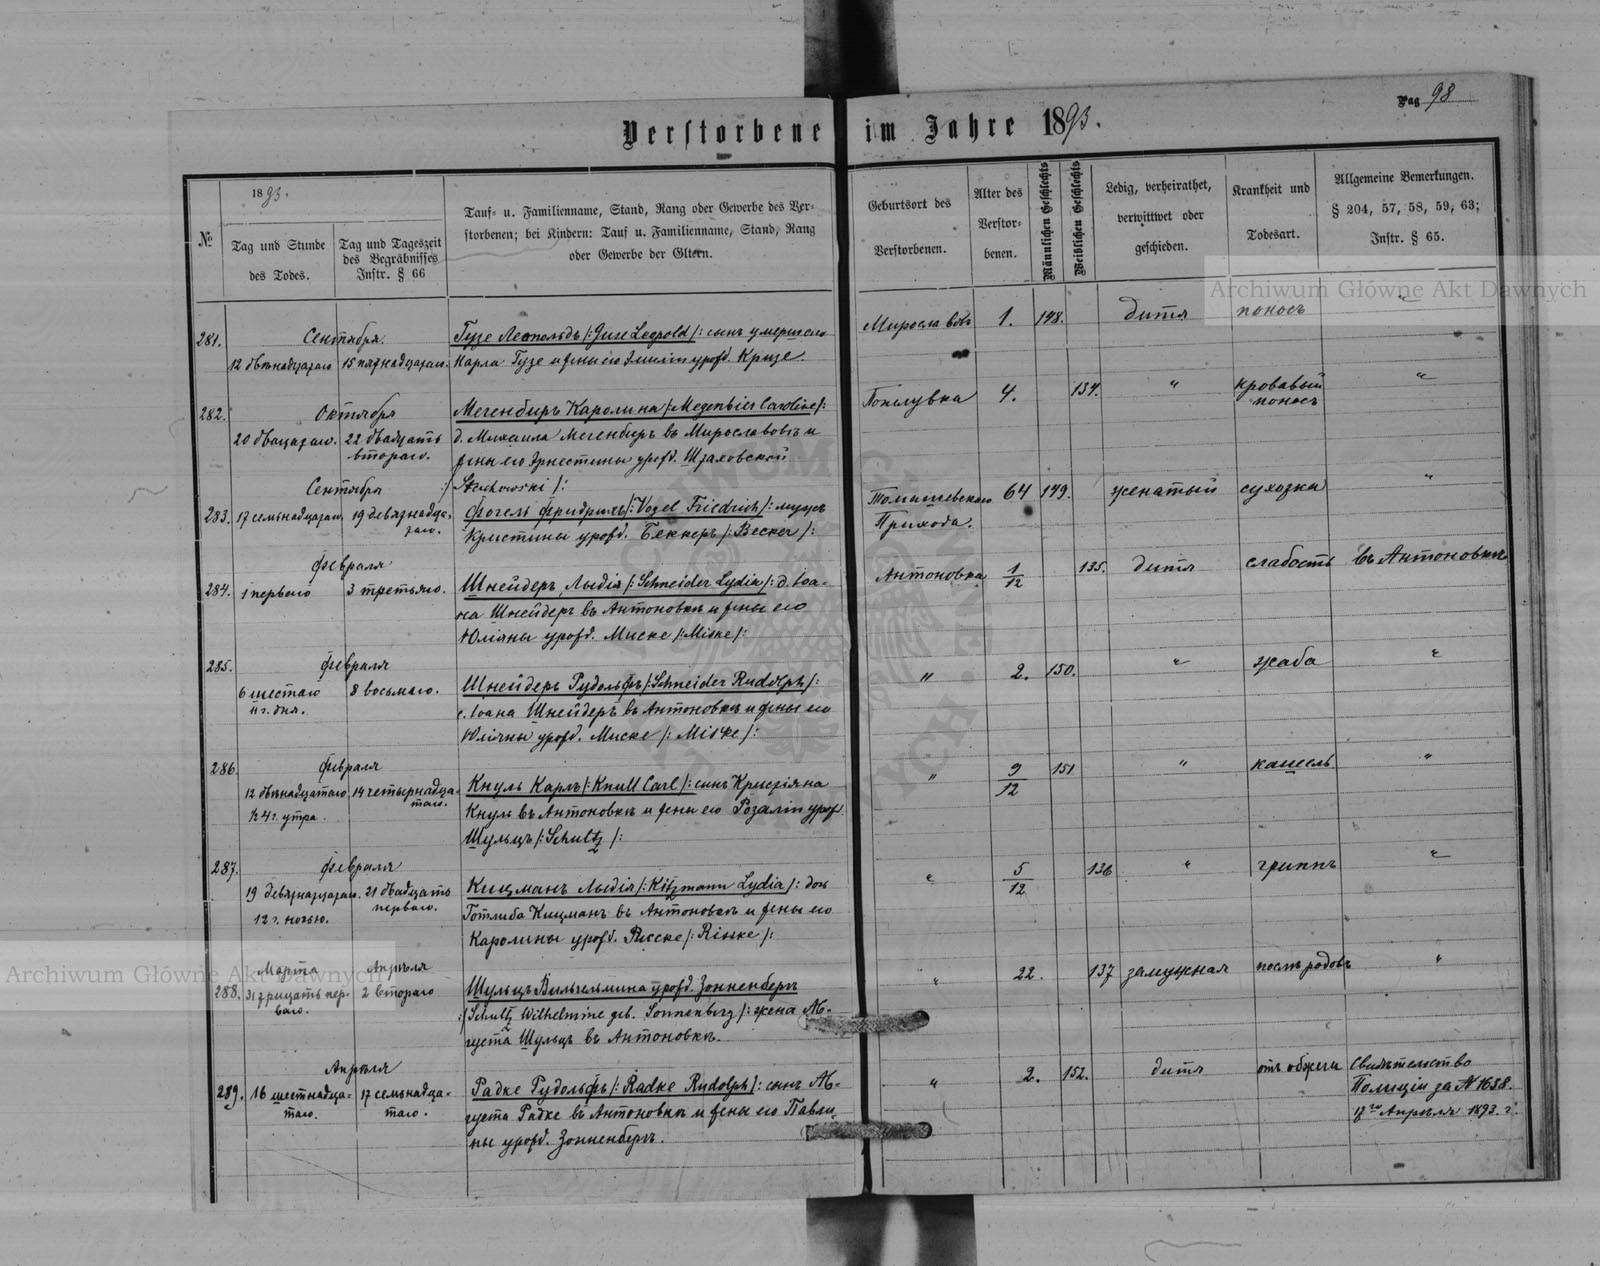 Pag 98
Verstorbene im Jahre 1893.
№
1893.
Tag und Stunde
des Todes.
Tag und Tageszeit
des Begräbnisses
Instr. § 66
Tauf- u. Familienname, Stand, Rang oder Gewerbe des Ver-
storbenen; bei Kindern: Tauf u. Familienname, Stand, Rang
oder Gewerbe der Eltern.
Geburtsort des
Verstorbenen.
Alter des
Verstor-
benen.
Männlichen Geschlechts
Weiblichen Geschlechts
Ledig, verheirathet,
verwittwet oder
geschieden.
Krankheit und
Todesart.
Allgemeine Bemerkungen.
§ 204, 57, 58, 59, 63;
Instr. § 65.
Archiwum Główne Akt Dawnych
281. Сентября. Гузе Леопольдъ /: Guse Leopold /: сынъ умершаго Мирославовъ 1. 148. дитя поносъ "
12 двѣнадцатаго 15 пятнадцатаго. Карла Гузе и жены его Эмиліи урожд. Кризе.
282. Октября Мегенбиръ Каролина /: Megenbier Caroline /: 4. 134. " кровавый "
поносъ
20 двадцатаго. 22 двадцать д. Михаила Мегенбиръ въ Мирославовъ и
втораго. жены его Эрнестины урожд. Штаховской
Сентября /: Stachowski /:
283. 17 семьнадцатаго 19 девятнадца- Фогель Фридрихъ /: Vogel Friedrich /: мужъ Томашевскаго 64 149. женатый сухозка "
таго. Кристины урожд. Беккеръ /: Becker /: Прихода.
Февраля
284. 1 перваго 3 третьяго. Шнейдеръ, Лидія /: Schneider Lydia /: д. Іоа- Антоновка 1/12 135. дитя слабость въ Антоновкѣ
на Шнейдеръ въ Антоновкѣ и жены его
Юліяны урожд. Миске /: Miske /:
285. Февраля
6 шестаго 8 восьмаго. Шнейдеръ Рудольфъ /: Schneider Rudolph /: " 2. 150. " жаба "
11 г. дня. с. Іоана Шнейдеръ въ Антоновкѣ и жены его
Юліяны урожд. Миске /: Miske /:
286. Февраля
12 двѣнадцатаго 14 четырнадца- Кнуль Карлъ /: Knull Carl /: сынъ Кристіяна " 9/12 151 " кашель "
таго.
½ 4 г. утра. Кнуль въ Антоновкѣ и жены его Розаліи урожд.
Шульцъ /: Schultz /:
287. Февраля
19 девятнадцатаго. 21 двадцать Кицманъ Лидія /: Kitzmann Lydia /: дочь " 5/12 136 " гриппъ "
перваго.
12 г. ночью. Готлиба Кицманъ въ Антоновкѣ и жены его
Каролины урожд. Риске /: Riske /:
Archiwum Główne Akt Dawnych
Марта Апрѣля
288. 31 тридцать пер- 2 втораго Шульцъ Вильгельмина урожд. Зонненбергъ " 22. 137 замужная послѣ родовъ "
ваго. /: Schultz Wilhelmine geb. Sonnenberg /: жена Ав-
густа Шульцъ въ Антоновкѣ.
Апрѣля
289. 16 шестнадца- 17 семьнадца- Радке Рудольфъ /: Radke Rudolph /: сынъ Ав- " 2. 152. дитя отъ обжеги Свидѣтельство
таго. таго. густа Радке въ Антоновкѣ и жены его Павли- Полиціи за № 1658.
ны урожд. Зонненбергъ. 17го Апрѣля 1893. г.